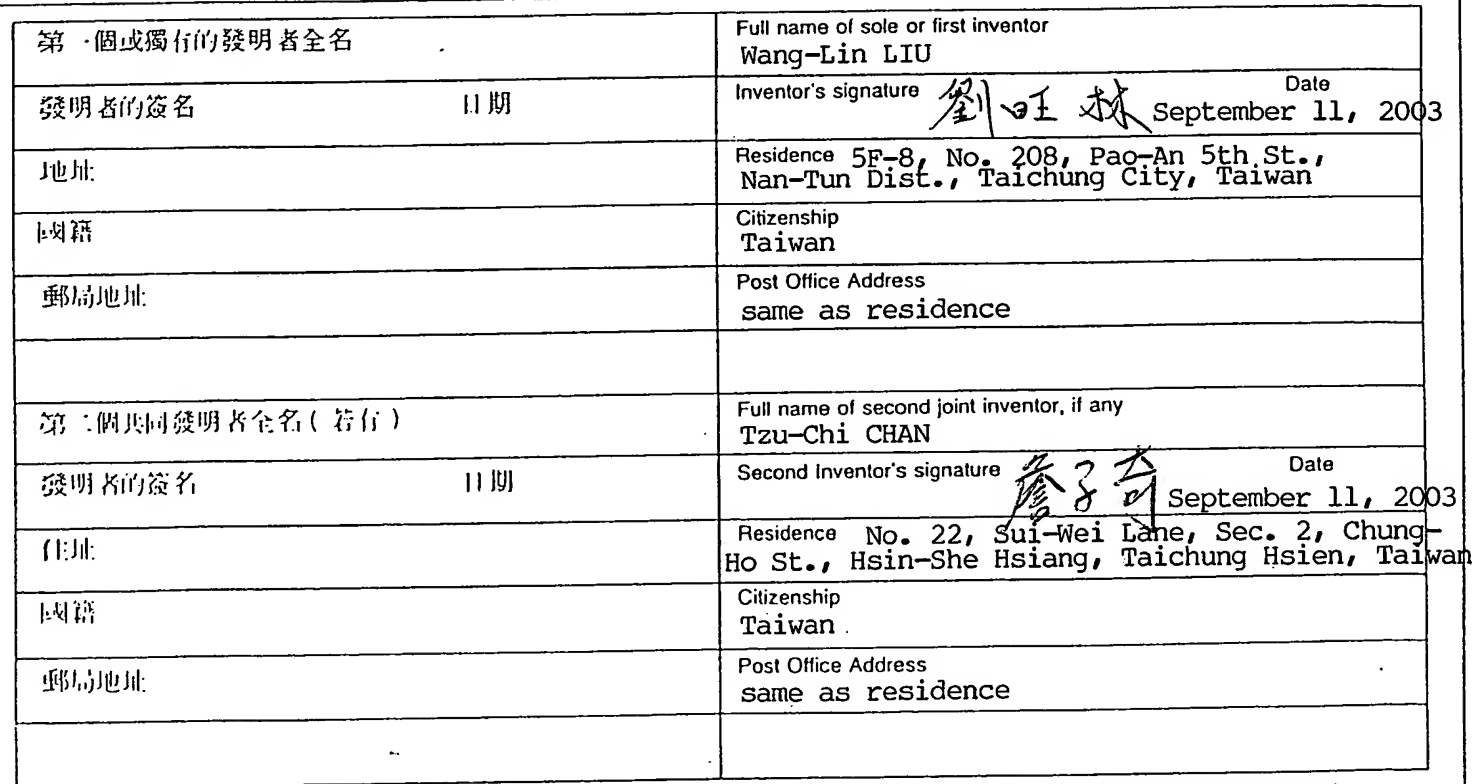 第一個或獨有的發明者全名
Full name of sole or first inventor
Wang-Lin LIU
發明者的簽名 日期
Inventor's signature 劉旺林 Date
September 11, 2003
地址
Residence 5F-8, No. 208, Pao-An 5th St.,
Nan-Tun Dist., Taichung City, Taiwan
國籍
Citizenship
Taiwan
郵局地址
Post Office Address
same as residence
第二個共同發明者全名(若有)
Full name of second joint inventor, if any
Tzu-Chi CHAN
發明者的簽名 日期
Second Inventor's signature 詹子奇 Date
September 11, 2003
住址
Residence No. 22, Sui-Wei Lane, Sec. 2, Chung-
Ho St., Hsin-She Hsiang, Taichung Hsien, Taiwan
國籍
Citizenship
Taiwan
郵局地址
Post Office Address
same as residence